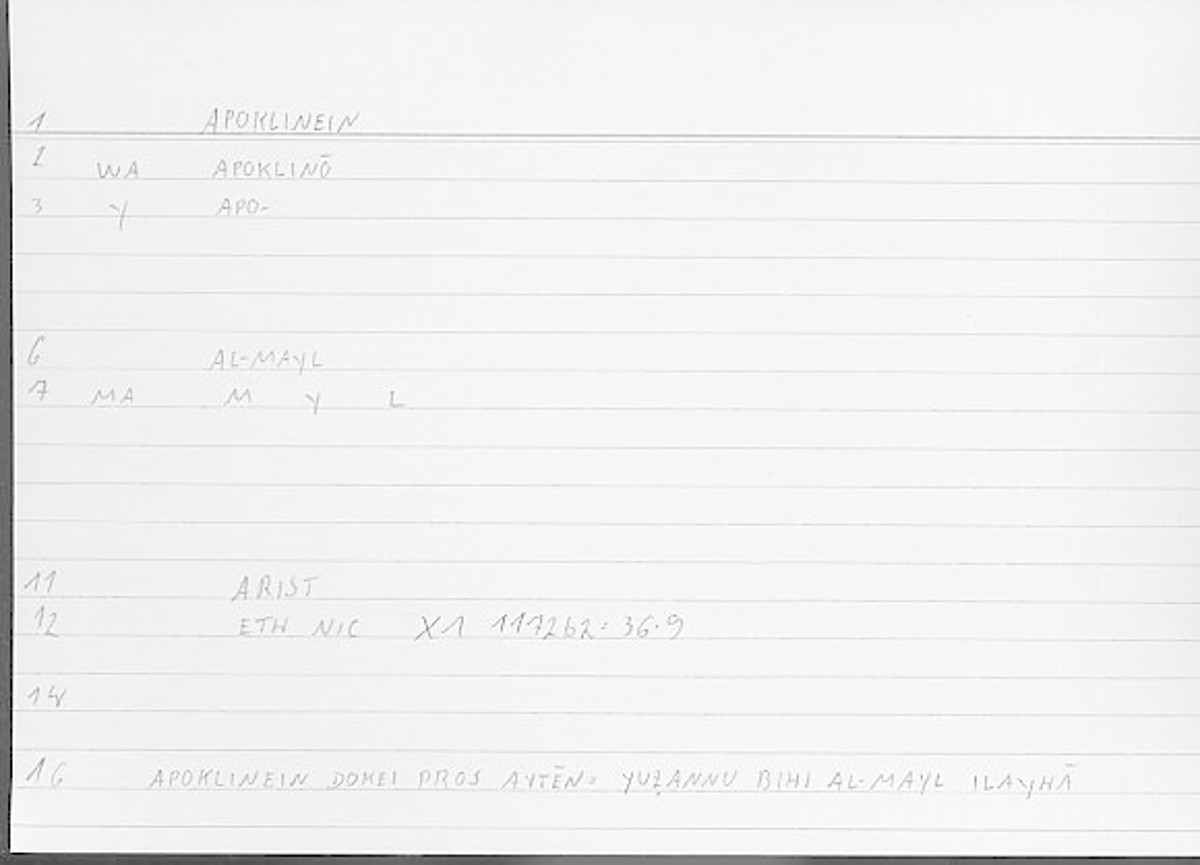 1 APOKLINEIN
2 WA APOKLINŌ
3 Y APO-
6 AL-MAYL
7 MA M Y L
11 ARIST
12 ETH NIC X1 1172b2: 36.9
14
16 APOKLINEIN DOKEI PROS AYTĒN= YUẒANNU BIHI AL-MAYL ILAYHĀ